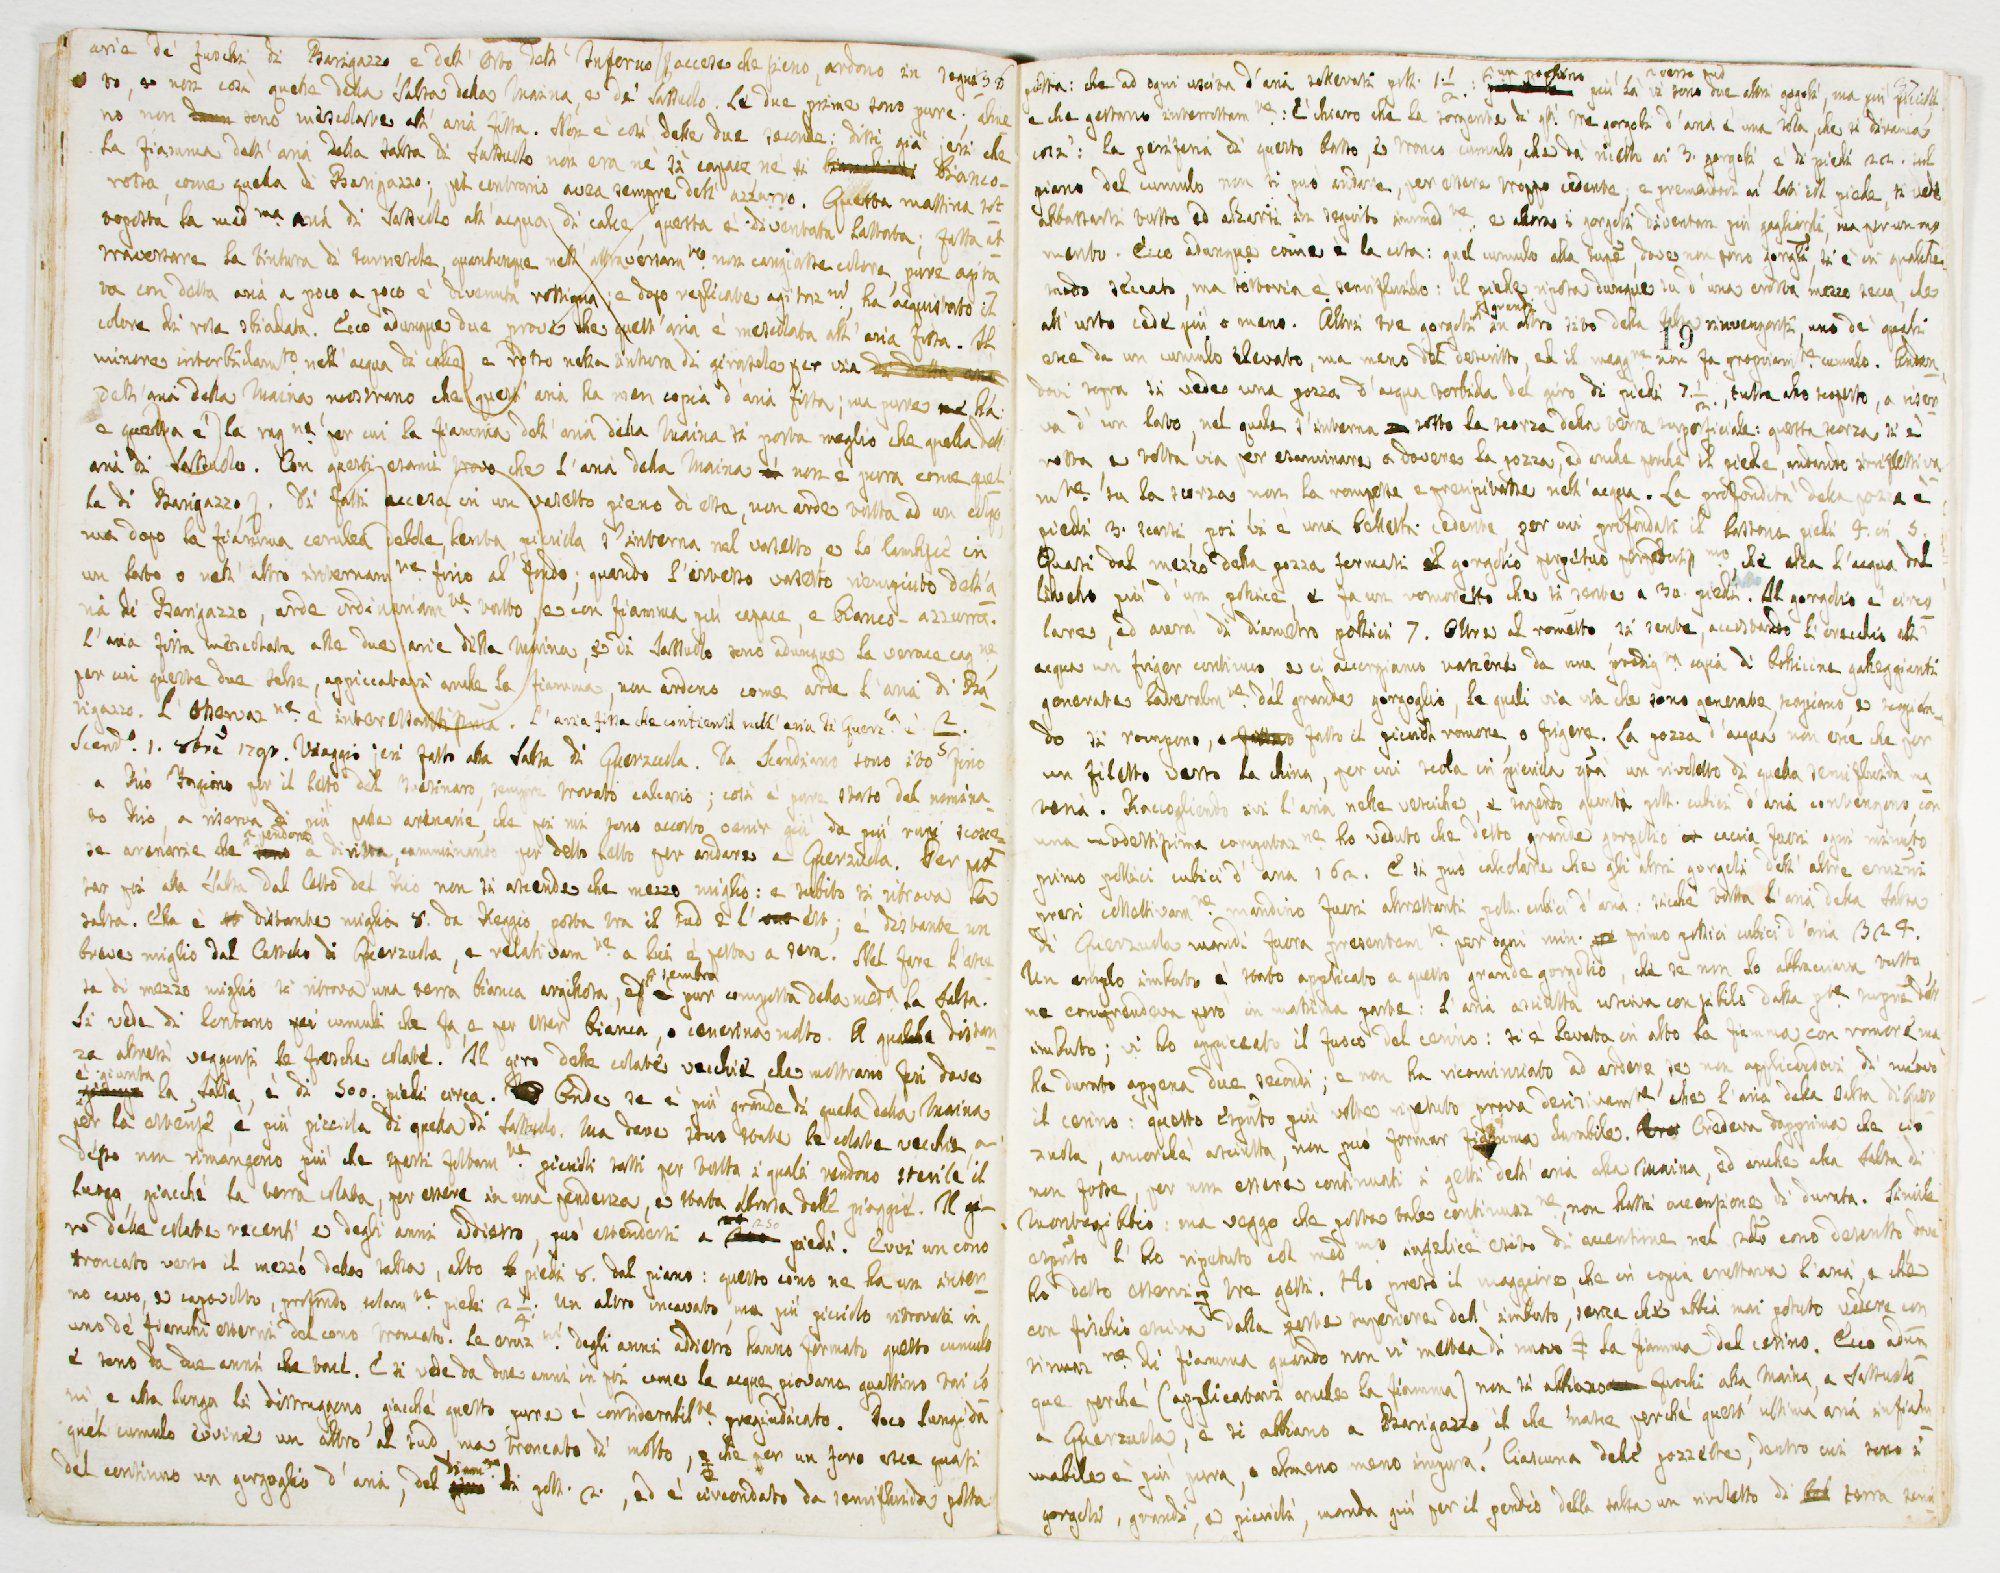 arie de' fuochi di Barigazzo e dell' Orto dell' Inferno accese che sieno, ardono in segui
to, e non così quelle della Salsa della Maina, e di Sassuolo. Le due prime sono pure: alme
no non sono mescolate all' aria fissa. Non è così delle due seconde: dissi già jeri che
la fiamma dell' aria della salsa di Sassuolo non era nè sì capace nè sì bianco-
rossa, come quella di Barigazzo; pel contrario avea sempre dell' azzurro. Questa mattina sot
toposta la med.ma aria di Sassuolo all' acqua di calce, questa è diventata lattata; fatta at
traversare la tintura di turnesole, quantunque nell' attraversam.to non cangiasse colore, pure agita
ta con detta aria a poco a poco è divenuta rossigna; e dopo replicate agitaz.ni, ha acquistato il
colore di rosa sbiadata. Ecco adunque due prove che quest' aria è mescolata all' aria fissa. Il
minore intorbidam.to nell' acqua di calce e rosso nella tintura di girasole per via
dell' aria della Maina mostrano che quest' aria ha men copia d' aria fissa; ma pure ne ha:
e questa è la rag.ne per cui la fiamma dell' aria della Maina si porta meglio che quella dell'
aria di Sassuolo. Con questi esami provo che l' aria della Maina non è pura come quel
la di Barigazzo. Di fatti accesa in un vasetto pieno di essa, non arde tutta ad un colpo,
ma dopo la fiamma cerulea debole, lenta, picciola s' interna nel vasetto, e lo lambisce in
un lato o nell' altro internam.te fino al fondo; quando l' istesso vasetto riempiuto dell' a
ria di Barigazzo, arde ordinariam.te tosto, e con fiamma più capace, e bianco-azzurra.
L' aria fissa mescolata alle due arie della Maina, e di Sassuolo sono adunque la verace cag.ne
per cui queste due salse, appiccatavi anche la fiamma, non ardono come arde l' aria di Ba
rigazzo. L' osservaz.ne è interessantissima. L' aria fissa che contiensi nell' aria di Querz.la è 2/5.
Scand.o 1. 8bre 179. Viaggio jeri fatto alla Salsa di Querzuola. Da Scandiano sono ito fino
a Rio per il letto del Tresinaro, sempre trovato calcario; così è pure stato del nomina
to Rio, a riserva di più pietre arenarie, che poi mi sono accorto venir giù da più rupi scosce
se arenarie che pendono a diritta, camminando per detto letto per andare a Querzuola. Per pas
sar poi alla Salsa dal letto del Rio non si ascende che mezzo miglio: e subito si ritrova la
salsa. Ella è distante miglia 8. da Reggio, posta tra il sud e l' est; è distante un
breve miglio dal Castello di Querzuola, e relativam.te a lui è posta a sera. Nel fare l' asce
sa di mezzo miglio si ritrova una terra bianca argillosa, e sembra pur composta della med.a la Salsa.
Si vede di lontano pei cumuli che fa, e per esser bianca, o cenerina molto. A qualche distan
za altresì veggonsi le fresche colate. Il giro delle colate vecchie, che mostrano fin dove
è giunta la Salsa, è di 500. piedi circa. Onde se è più grande di quella della Maina
per la estens.e, è più picciola di quella di Sassuolo. Ma dove sono state le colate vecchie, a-
desso non rimangono più che sparsi soltam.te piccioli sassi per tutto i quali rendono sterile il
luogo, giacchè la terra colata, per essere in una pendenza, è stata abrasa dalle pioggie. Il gi-
ro delle colate recenti e degli anni addietro, può estendersi a 250 piedi. Evvi un cono
troncato verso il mezzo della salsa, alto piedi 8. dal piano: questo cono ne ha un inter
no cavo, e capovolto, profondo solam.te piedi 2 1/4. Un altro incavato, ma più picciolo ritrovasi in
uno de' fianchi esterni del cono troncato. Le eruz.ni degli anni addietro hanno formato questo cumulo
e sono da due anni che tace. E si vede da due anni in poi come le acque piovane guastino tai co
ni e alla lunga li distruggono, giacchè questo pure è considerabil.te pregiudicato. Poco lungi da
quel cumulo evvene un altro al sud, ma troncato di molto, e che per un foro esce quasi
del continuo un gorgoglio d' aria, del diam.tro di poll. 2., ed è circondato da semifluida posta
19
pasta: che ad ogni uscita d' aria sollevasi poll. 1 1/2: un pochino più là verso sud vi sono due altri gorgogli, ma più piccioli
e che gettano interrottam.te: È chiaro che la sorgente di q.ti tre gorgogli d' aria è una sola, che si dirama
così: la periferia di questo basso, e tronco cumulo, che dà ricetto ai 3. gorgogli è di piedi 22. Sul
piano del cumulo non si può andare, per essere troppo cedente; e premendosi ai lati col piede, si vede
abbassarsi tosto ed alzarsi in seguito immed.te e allora i gorgogli diventan più gagliardi, ma per un mo
mento. Ecco adunque come è la cosa: quel cumulo alla sup.e, dove non sono gorgogli, si è in qualche
modo seccato, ma tuttavia è semifluido: il piede riposa dunque su d' una crosta mezzo secca, che
all' urto cede più o meno. Altri tre gorgogli grandi in altro sito della salsa rinvengonsi, uno de' quali
esce da un cumulo elevato, ma meno del descritto, ed il magg.re non fa propriam.te cumulo. Anden
dovi sopra si vede una pozza d' acqua torbida del giro di piedi 7 1/2., tutta allo scoperto, a riser
va d' un lato, nel quale s' interna sotto la scorza della terra superficiale: questa scorza si è
rotta, e tolta via per esaminare a dovere la pozza, ed anche perchè il piede, andando semplicissima
m.te su la scorza non la rompesse e precipitasse nell' acqua. La profondità della pozza è
piedi 3. scarsi, poi vi è una belletta cedente, per cui profondasi il bastone piedi 4. in 5.
Quasi dal mezzo della pozza formasi il gorgoglio perpetuo, che alza l' acqua dal
livello più d' un pollice, e fa un romoretto che si sente a 30. piedi. Il gorgoglio è circo
lare, ed averà di diametro pollici 7. Oltre al rom.etto, si sente, accostando l' orecchio all'
acqua un friger continuo, e ci accorgiamo nascere da una prodig.sa copia di bollicine galleggianti
generate lateralm.te dal grande gorgoglio, le quali via via che sono generate, scoppiano, e scoppian
do si rompono, e fatto il picciol romore, o frigere. La pozza d' acqua non esce che per
un filetto verso la china, per cui scola in picciola un rivoletto di quella semifluida ma
teria. Raccogliendo ivi l' aria nelle vesciche, e sapendo quanti poll. cubici d' aria contengono, con
una modestissima computaz.ne ho veduto che detto grande gorgoglio caccia fuori ogni minuto
primo pollici cubici d' aria 162. E si può calcolare che gli altri gorgogli dell' altre eruzioni
presi collettivam.te mandino fuori altrettanti poll. cubici d' aria: sicchè tutta l' aria della salsa
di Querzuola mandi fuora presentem.te per ogni min. primo pollici cubici d' aria 324.
Un amplo imbuto è stato applicato a questo grande gorgoglio, che se non lo abbracciava tutto,
ne comprendeva però in massima parte: l' aria accolta usciva con sibilo dalla p.te super.e dell'
imbuto; vi ho appiccato il fuoco del cerino: si è levata in alto la fiamma con romore, ma
ha durato appena due secondi; e non ha ricominciato ad ardere, se non applicandovi di nuovo
il cerino: questo esp.nto più volte ripetuto prova decisivam.te che l' aria della salsa di Quer
zuola, ancorchè accolta, non può formar fiamma durabile. Credeva dapprima che ciò
non fosse, per non essere continuati i getti dell' aria alla Maina, ed anche alla Salsa di
Montegibbio: ma veggo che posta tale continuaz.ne, non hassi accensione di durata. Simile
esp.nto l' ho ripetuto col med.mo infelice esito di accensione nel solo cono descritto dove
ho detto esservi tre getti. Ho preso il maggiore, che in copia eruttava l' aria, e che
con fischio usciva dalla parte superiore dell' imbuto, senza che abbia mai potuto vedere con
tinuaz.ne di fiamma quando non vi metteva di nuovo la fiamma del cerino. Ecco adun
que perchè (applicatavi anche la fiamma) non si abbiano fuochi alla Maina, a Sassuolo,
a Querzuola, e si abbiano a Barigazzo, il che nasce perchè quest' ultima aria infiam
mabile è più pura, o almeno meno impura. Ciascuna delle pozzette, dentro cui sono i
gorgogli, grandi, e piccioli, manda giù per il pendio della salsa un rivoletto di terra semi